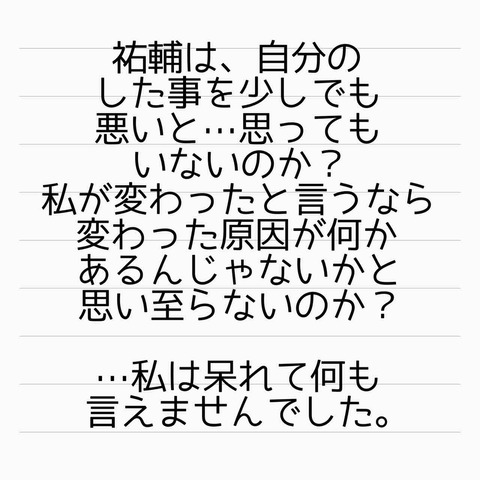 祐輔は、自分の
した事を少しでも
悪いと…思っても
いないのか？
私が変わったと言うなら
変わった原因が何か
あるんじゃないかと
思い至らないのか？
…私は呆れて何も
言えませんでした。